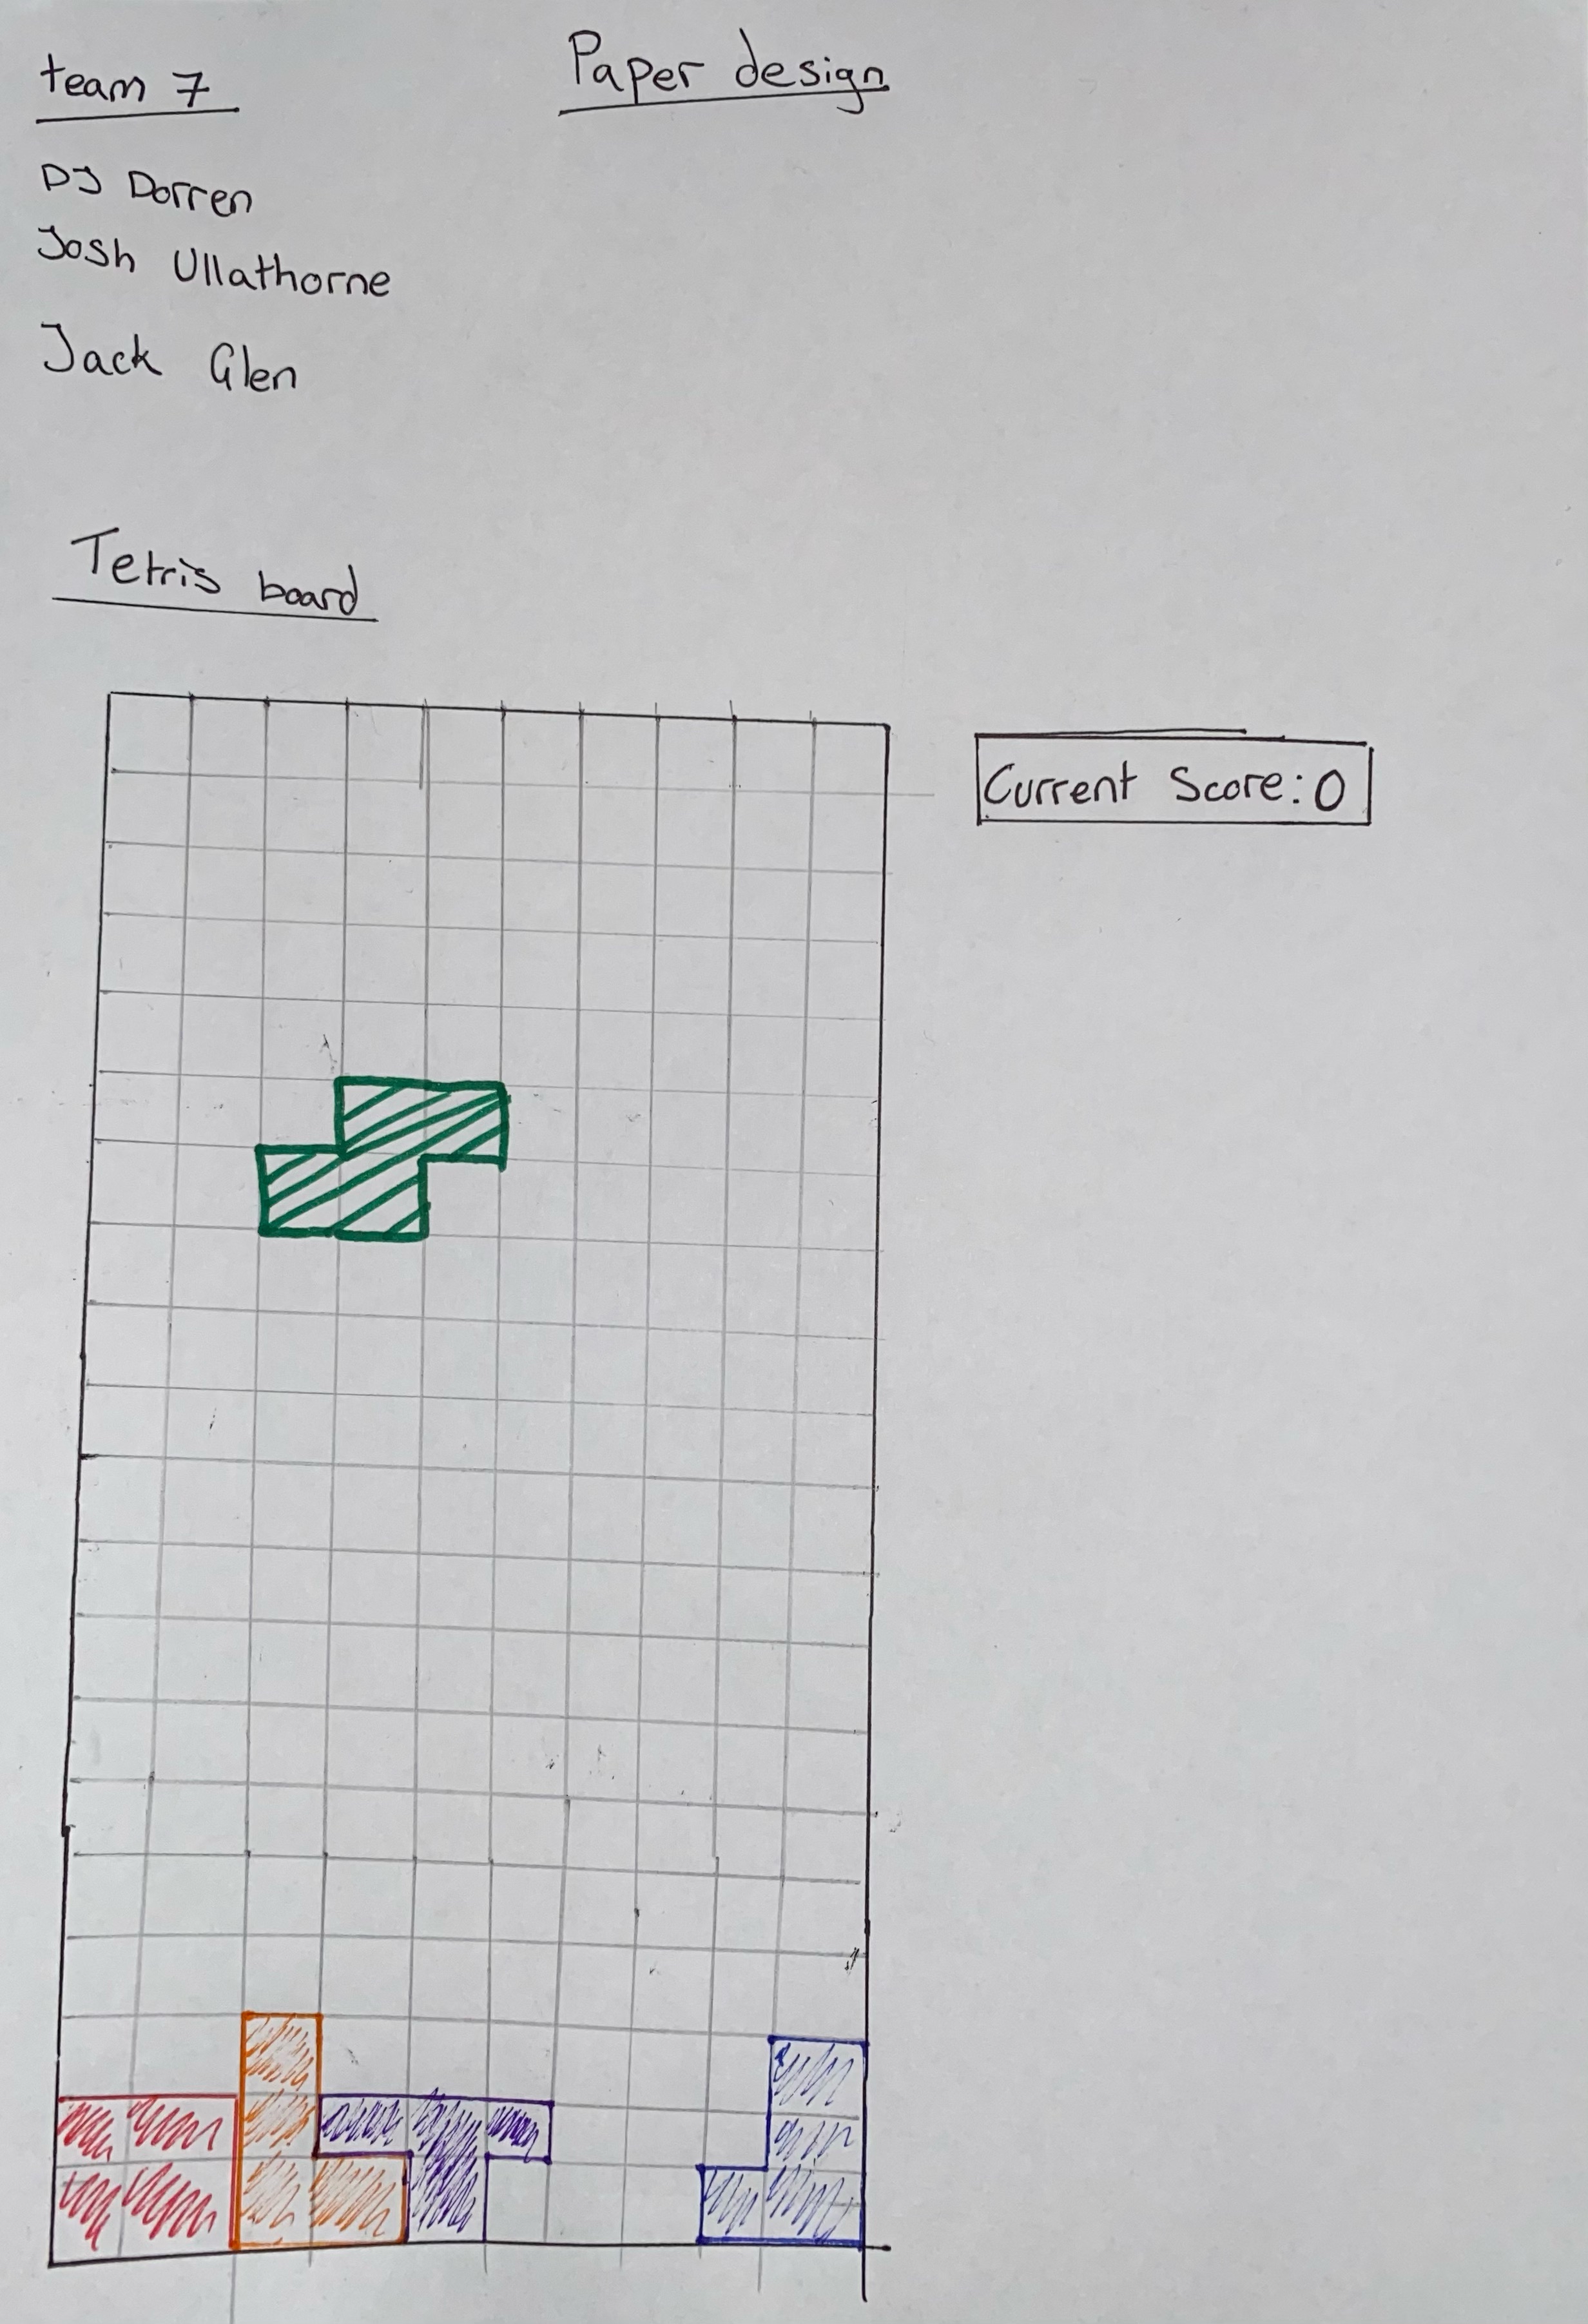 team 7
Paper design
DJ Dorren
Josh Ullathorne
Jack Glen
Tetris board
Current Score: 0